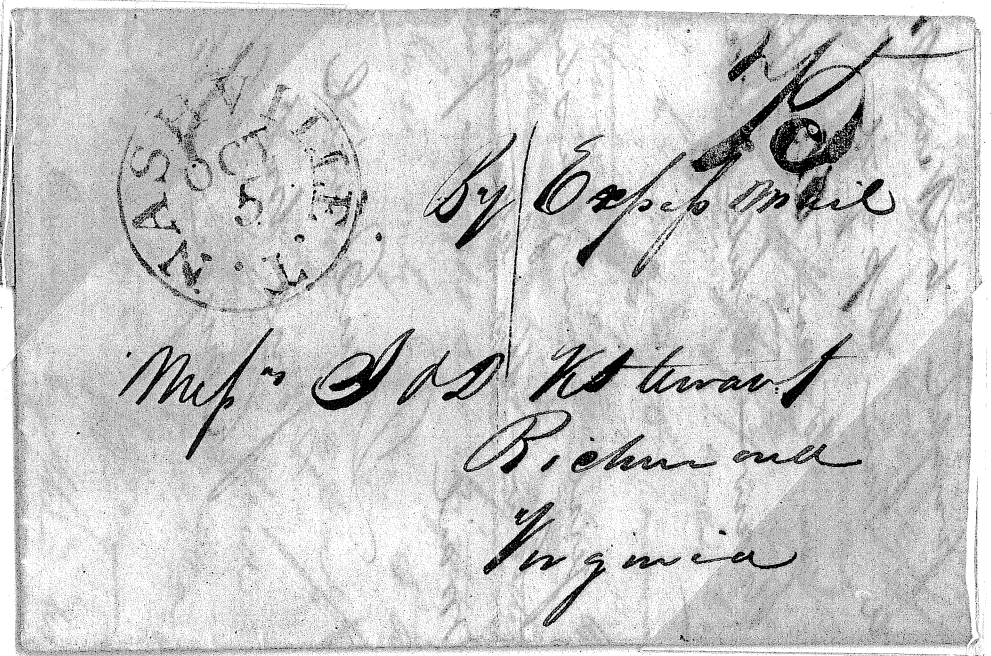 NASHVILLE. T.
OCT
5
75
By Express Mail
Mess rs S & D Stewart
Richmond
Virginia